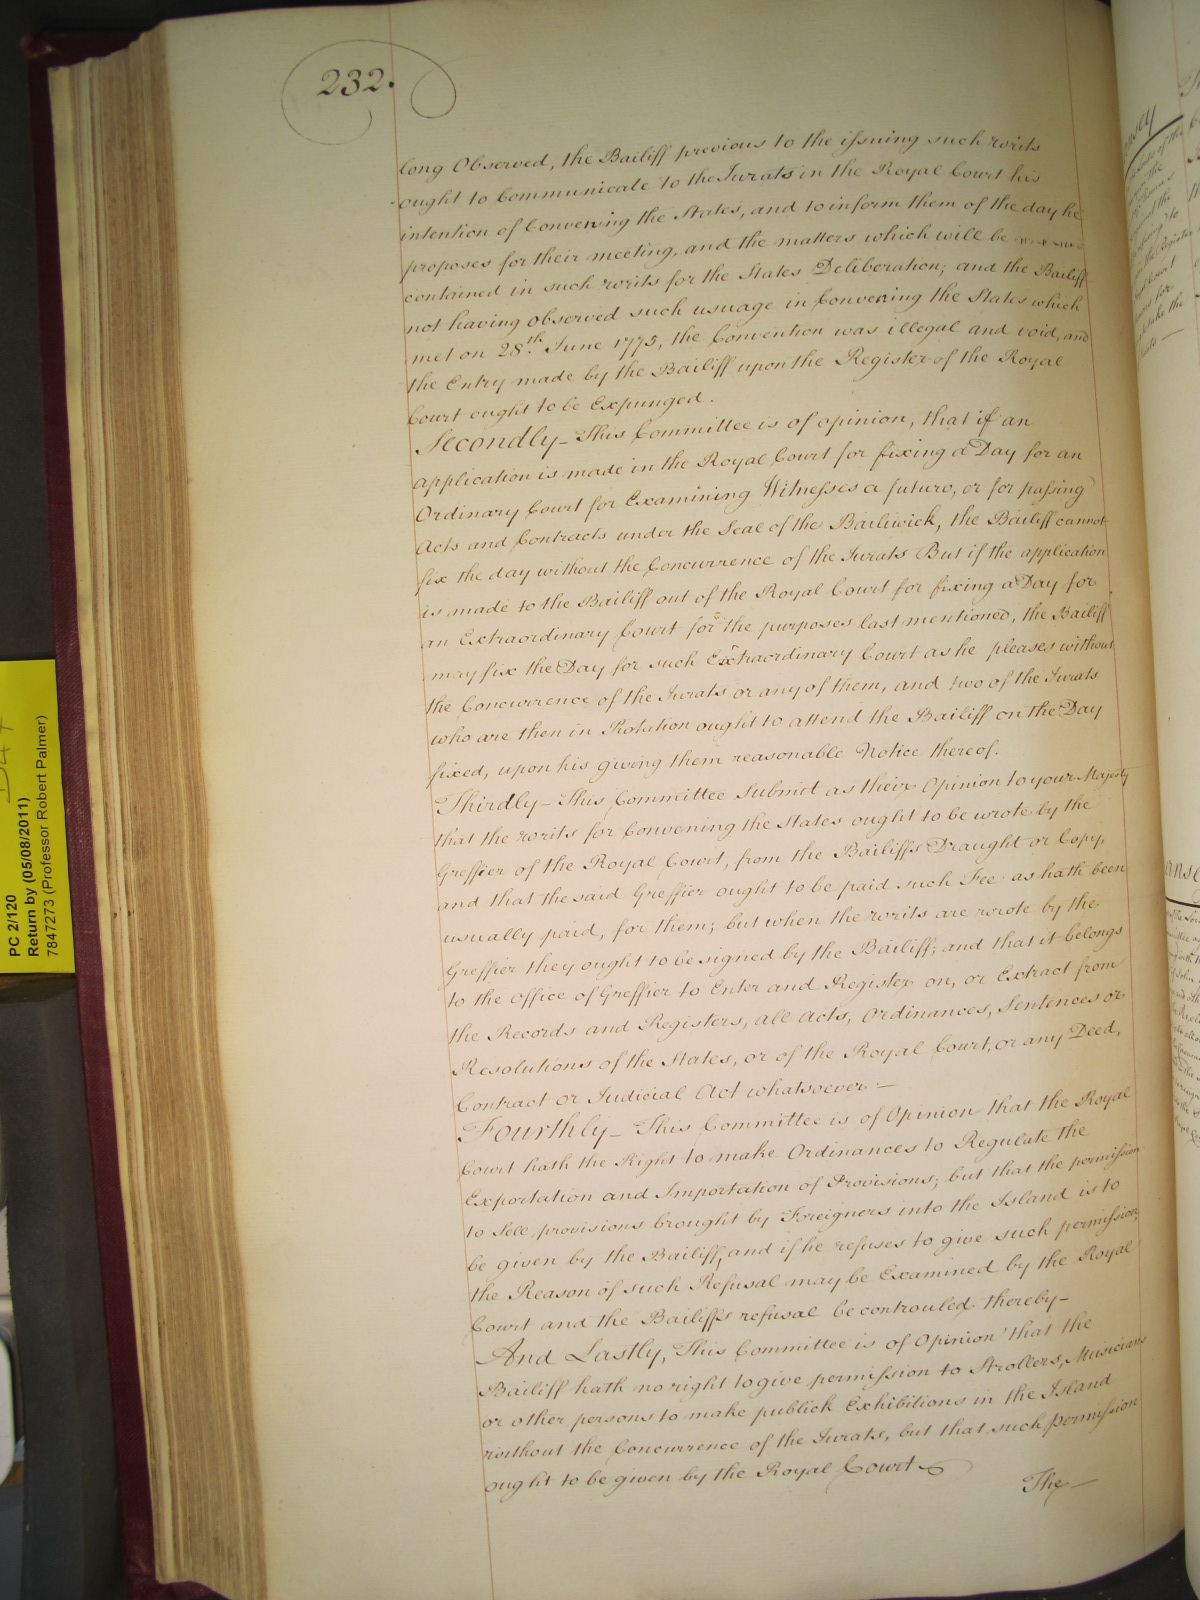 232.
long Observed, the Bailiff previous to the issuing such writs
ought to Communicate to the Jurats in the Royal Court his
intention of Convening the States, and to inform them of the day he
proposes for their meeting, and the matters which will be
contained in such writs for the States Deliberation; and the Bailiff
not having observed such usuage in Convening the States which
met on 28th June 1775, the Convention was illegal and void, and
the Entry made by the Bailiff upon the Register of the Royal
Court ought to be Expunged.
Secondly - This Committee is of opinion, that if an
application is made in the Royal Court for fixing a Day for an
Ordinary Court for Examining Witnesses a futuro, or for passing
Acts and Contracts under the Seal of the Bailiwick, the Bailiff cannot
fix the day without the Concurrence of the Jurats But if the application
is made to the Bailiff out of the Royal Court for fixing a Day for
an Extraordinary Court for the purposes last mentioned, the Bailiff
may fix the Day for such Extraordinary Court as he pleases without
the Concurrence of the Jurats or any of them, and two of the Jurats
who are then in Rotation ought to attend the Bailiff on the Day
fixed, upon his giving them reasonable Notice thereof.
Thirdly - This Committee Submit as their Opinion to your Majesty
that the writs for Convening the States ought to be wrote by the
Greffier of the Royal Court, from the Bailiffs Draught or Copy,
and that the said Greffier ought to be paid such Fee as hath been
usually paid, for them; but when the writs are wrote by the
Greffier they ought to be signed by the Bailiff; and that it belongs
to the office of Greffier to Enter and Register on, or Extract from
the Records and Registers, all Acts, Ordinances, Sentences or
Resolutions of the States, or of the Royal Court, or any Deed,
Contract or Judicial Act whatsoever -
Fourthly - This Committee is of Opinion that the Royal
Court hath the Right to make Ordinances to Regulate the
Exportation and Importation of Provisions; but that the permission
to Sell provisions brought by Foreigners into the Island is to
be given by the Bailiff, and if he refuses to give such permission,
the Reason of such Refusal may be Examined by the Royal
Court and the Bailiffs refusal be controuled thereby -
And Lastly, This Committee is of Opinion that the
Bailiff hath no right to give permission to Strollers, Musicians
or other persons to make publick Exhibitions in the Island
without the Concurrence of the Jurats, but that such permission
ought to be given by the Royal Court
The
PC 2/120
Return by (05/08/2011)
7847273 (Professor Robert Palmer)